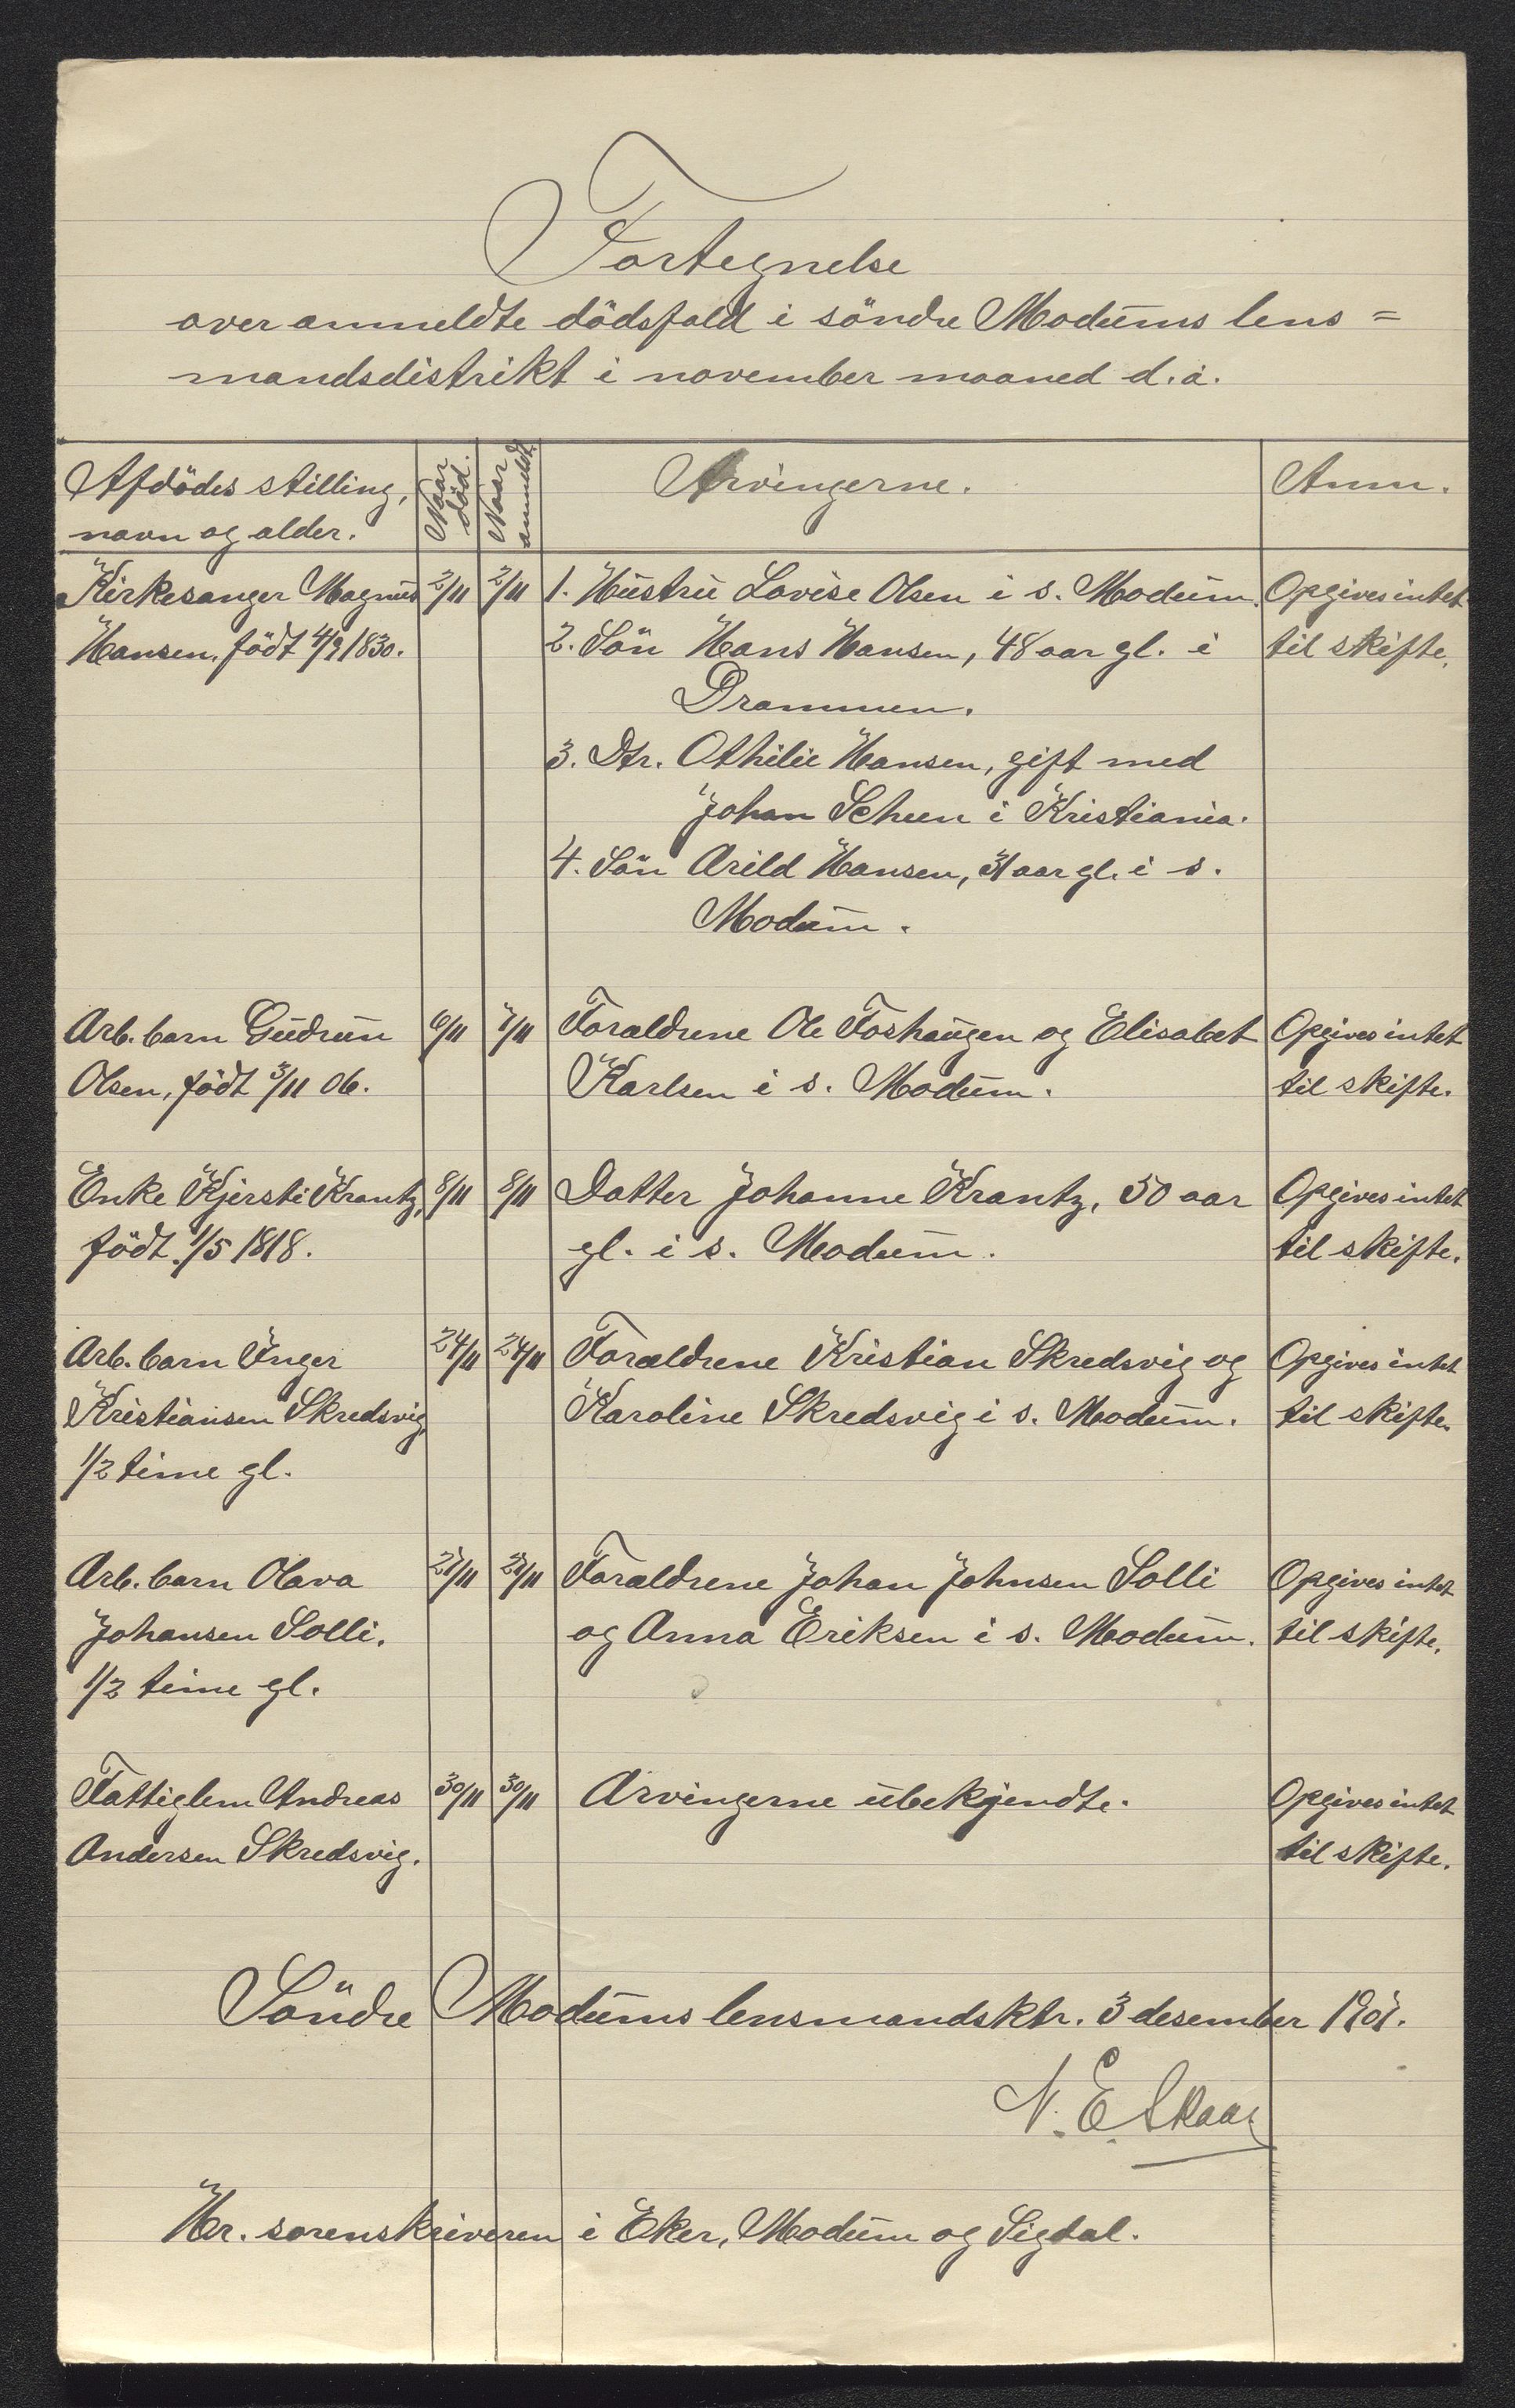 Fortegnelse
over anmeldte dödsfald i söndre Modums lens=
mandsdistrikt i november maaned d.a.
Afdödes stilling, navn og alder. Naar död. Naar anmeldt. Arvingerne. Anm.
Kirkesanger Magnus 2/11 2/11 1. Hustru Lovise Olsen i s. Modum. Opgives intet
Hansen, födt 4/9 1830. 2. Sön Hans Hansen, 48 aar gl. i til skifte.
Drammen.
3. Dtr. Othilie Hansen, gift med
Johan Scheen i Kristiania.
4. Sön Arild Hansen, 31 aar gl. i s.
Modum.
Arb. barn Gudrun 6/11 7/11 Forældrene Ole Foshaugen og Elisabet Opgives intet
Olsen, födt 3/11 06. Karlsen i s. Modum. til skifte.
Enke Kjersti Krantz, 8/11 8/11 Datter Johanne Krantz, 50 aar Opgives intet
födt 1/5 1818. gl. i s. Modum. til skifte.
Arb. barn Inger 24/11 24/11 Forældrene Kristian Skredsvig og Opgives intet
Kristiansen Skredsvig, Karoline Skredsvig i s. Modum. til skifte.
1/2 time gl.
Arb. barn Olava Forældrene Johan Johnsen Solli Opgives intet
Johansen Solli, og Anna Eriksen i s. Modum. til skifte.
1/2 time gl.
Fattiglem Andreas 30/11 30/11 Arvingerne ubekjendte. Opgives intet
Andersen Skredsvig. til skifte.
Söndre Modums lensmandsktr. 3 desember 1907.
N. E. Skaar
Hr. sorenskriveren i Eker, Modum og Sigdal.